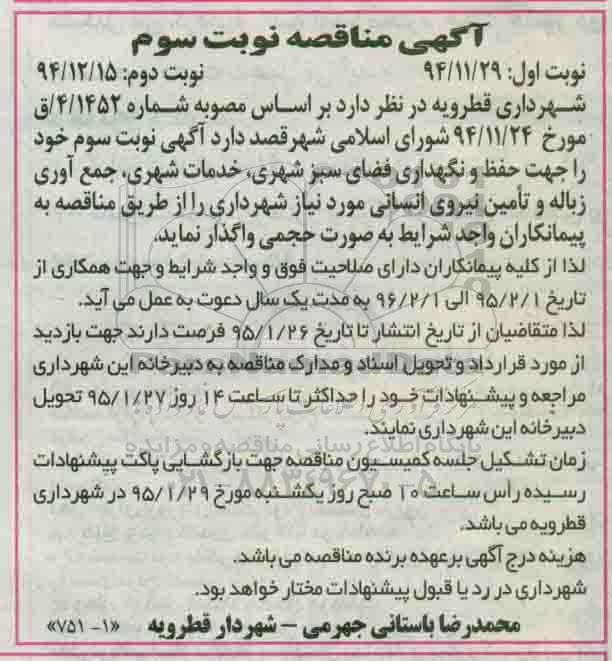 آگهی مناقصه نوبت سوم
نوبت اول: ۹۴/۱۱/۲۹ نوبت دوم: ۹۴/۱۲/۱۵
شهرداری قطرویه در نظر دارد بر اساس مصوبه شماره ۴/۱۴۵۲/ق
مورخ ۹۴/۱۱/۲۴ شورای اسلامی شهرقصد دارد آگهی نوبت سوم خود
را جهت حفظ و نگهداری فضای سبز شهری، خدمات شهری، جمع آوری
زباله و تأمین نیروی انسانی مورد نیاز شهرداری را از طریق مناقصه به
پیمانکاران واجد شرایط به صورت حجمی واگذار نماید.
لذا از کلیه پیمانکاران دارای صلاحیت فوق و واجد شرایط و جهت همکاری از
تاریخ ۹۵/۲/۱ الی ۹۶/۲/۱ به مدت یک سال دعوت به عمل می آید.
لذا متقاضیان از تاریخ انتشار تا تاریخ ۹۵/۱/۲۶ فرصت دارند جهت بازدید
از مورد قرارداد و تحویل اسناد و مدارک مناقصه به دبیرخانه این شهرداری
مراجعه و پیشنهادات خود را حداکثر تا ساعت ۱۴ روز ۹۵/۱/۲۷ تحویل
دبیرخانه این شهرداری نمایند.
پایگاه اطلاع رسانی مناقصه و مزایده
زمان تشکیل جلسه کمیسیون مناقصه جهت بازگشایی پاکت پیشنهادات
رسیده راس ساعت ۱۰ صبح روز یکشنبه مورخ ۹۵/۱/۲۹ در شهرداری
قطرویه می باشد.
هزینه درج آگهی برعهده برنده مناقصه می باشد.
شهرداری در رد یا قبول پیشنهادات مختار خواهد بود.
محمدرضا باستانی جهرمی – شهردار قطرویه «۱- ۷۵۱»